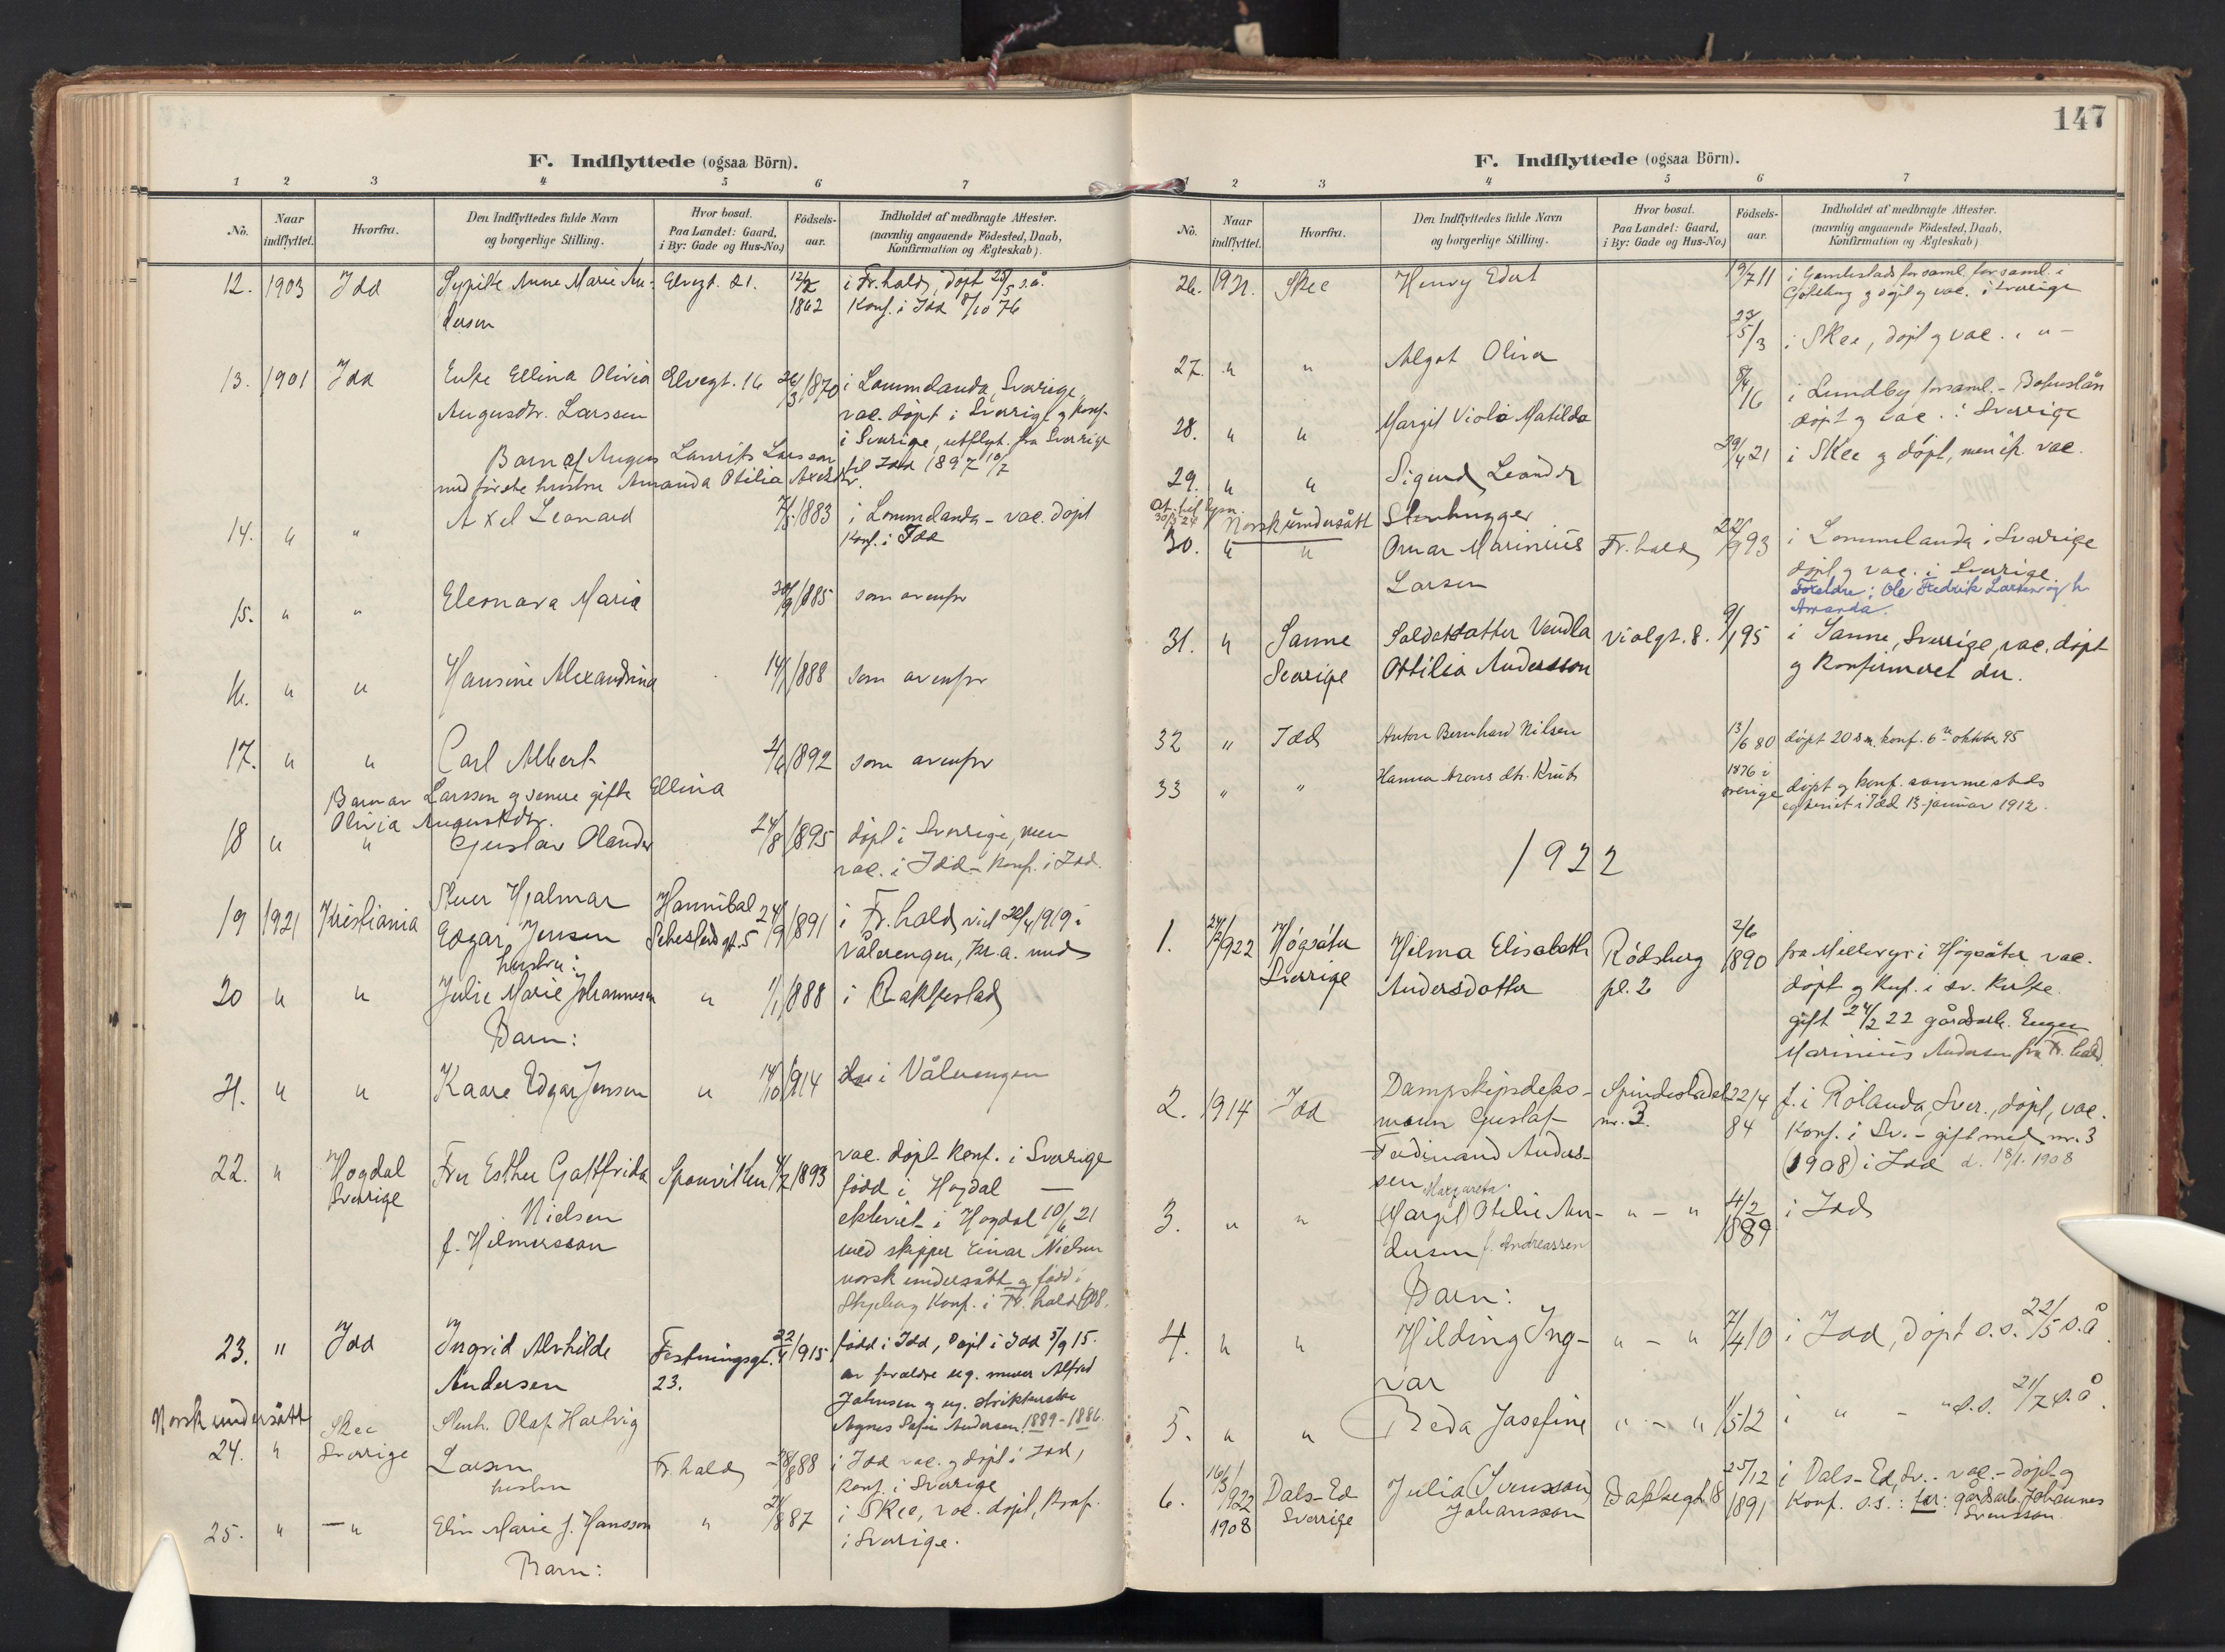 F. Indflyttede (ogsaa Börn).
1 2 3 4 5 6 7
No.
Naar indflyttet.
Hvorfra.
Den Indflyttedes fulde Navn og borgerlige Stilling.
Hvor bosat. Paa Landet: Gaard, i By: Gade og Hus-No.)
Födsels-aar.
Indholdet af medbragte Attester. (navnlig angaaende Födested, Daab, Konfirmation og Ægteskab)
12. 1903 Idd Sypike Anne Marie An- Elvegt. 21. i Fr.hald, døpt 25/5 s.å.
dersen 1862 Konf. i Idd 8/10 76
13. 1901 Idd Enke Ellina Olivia Elvegt. 16 26/3 1870 i Lommelanda, Sverige,
Augustdtr. Larssen vac. døpt i Sverige og konf.
i Sverige, utflyt. fra Sverige
Barn af August Laurits Larsson til Idd 1897 10/7
med første hustru Amanda Otilia Axelsdtr.
14. " " Axel Leonard 7/8 1883 i Lommelanda - vac. døpt
Konf. i Idd
15. " " Eleonara Maria 30/9 1885 som ovenfor
16. " " Hansine Alexandrina 14/1 1888 som ovenfor
17. " " Carl Albert 2/6 1892 som ovenfor
Barn av Larsson og senere gifte Ellina
Olivia Augustdtr.
18 " " Gustav Olander 24/8 1895 døpt i Sverige, men
vac. i Idd - Konf. i Idd.
19 1921 Kristiania Stuer Hjalmar Hannibal 24/9 1891 i Fr.hald, viet 20/4 1919 i
Edgar Jensen Sehestedsgt. 5 Vålerengen, Kr.a. med
hustru:
20 " " Julie Marie Johannesen " 1/1 1888 i Rakkestad
Barn:
21. " " Kaare Edgar Jensen " 14/10 1914 i Vålerengen
22. " Hogdal Fru Esther Gottfrida Sponvikens 4/7 1893 vac. døpt - Konf. i Sverige
Sverige Nielsen født i Hogdal —
f. Hilmersson ekteviet i Hogdal 10/6 21
med skipper Einar Nielsen
norsk undersått og født i
Skjeberg Konf. i Fr.hald 1908.
23. " Idd Ingrid Alvhilde Festningsgt. 22/4 1915 född i Idd, døpt i Idd 5/9 15.
Andersen 23. av forældre ug. murer Alfred
Johnsen og ug. strikkerske
Agnes Sofie Andersen. 1889-1886.
Norsk undersått Skee Stenh. Olaf Hartvig
24. " Sverige Larsen Fr.hald 28/8 88 i Idd vac. og døpt i Idd,
hustru Konf. i Sverige
25. " — " Elin Marie f. Hansson " 21/8 87 i Skee, vac. døpt, Konf.
i Sverige.
Barn:
147
F. Indflyttede (ogsaa Börn).
1 2 3 4 5 6 7
No.
Naar indflyttet.
Hvorfra.
Den Indflyttedes fulde Navn og borgerlige Stilling.
Hvor bosat. Paa Landet: Gaard, i By: Gade og Hus-No.)
Födsels-aar.
Indholdet af medbragte Attester. (navnlig angaaende Födested, Daab, Konfirmation og Ægteskab)
26. 1921. Skee Henry Edert 19/7 11 i Gamlestads forsaml. forsaml. i
Göteborg og døpt og vac. i Sverige
27. " " Algot Oliva 23/5 13 i Skee, døpt og vac. i " -
28. " " Margit Viola Matilda 8/4 16 i Lundby forsaml. - Bohuslän
døpt og vac. i Sverige
29. " " Sigurd Leander 29/4 21 i Skee og døpt, men ik. vac.
Norsk undersått Stenhugger
30. " " Omar Marinius Fr.hald 22/9 93 i Lommelanda i Sverige
Larsen døpt og vac. i Sverige.
Foreldre: Ole Fredrik Larsen og h.
Amanda.
31. " Sanne Soldatdatter Vendla Violgt. 8. 9/1 95 i Sanne, Sverige, vac. døpt
Sverige Ottilia Andersson og konfirmeret der.
32 " Idd Anton Bernhard Nilsen 13/6 80 døpt 20 s.m. konf. 6te oktober 95
33 " " Hanna Arons dtr. 1876 i døpt og konf. sammesteds
Sverige egteviet i Idd 13-januar 1912.
1922
1. 24/2 1922 Högsäter Hilma Elisabeth Rødsberg 2/6 fra Millevyr i Högsäter vac.
Sverige Andersdotter pl. 2 1890 døpt og Konf. i sv. kirke.
gift 24/2 22 gårdsarb. Eugen
Marinius Andersen fra Fr.hald.
2. 1914 Idd Dampskipsdeks- Spindeslade 22/4 f. i Rölanda, Sver., døpt, vac.
mann Gustaf nr. 3. 84 Konf. i Sv. - gift med nr. 3
Ferdinand Anders- (1908) i Idd d. 18/1. 1908
sen
Margareta.
3. " " (Margit) Otelie An- " - " 4/2 i Idd
dersen f. Andreassen 1889
Barn:
4. " " Hilding Ing- " - " 7/4 10 i Idd, døpt s.s. 22/5 s.å.
var
5. " " Beda Josefine " - " 1/5 12 i " - " s.s. 21/7 s.å.
6. 16/3 1922 Dals-Ed Julia (Svensson) Bakkegt 8 25/12 i Dals-Ed, Sv. - vac. - døpt og
1908 Sverige Johansson 1891 Konf. s.s.: far: gårdsarb. Johannes
Svensson